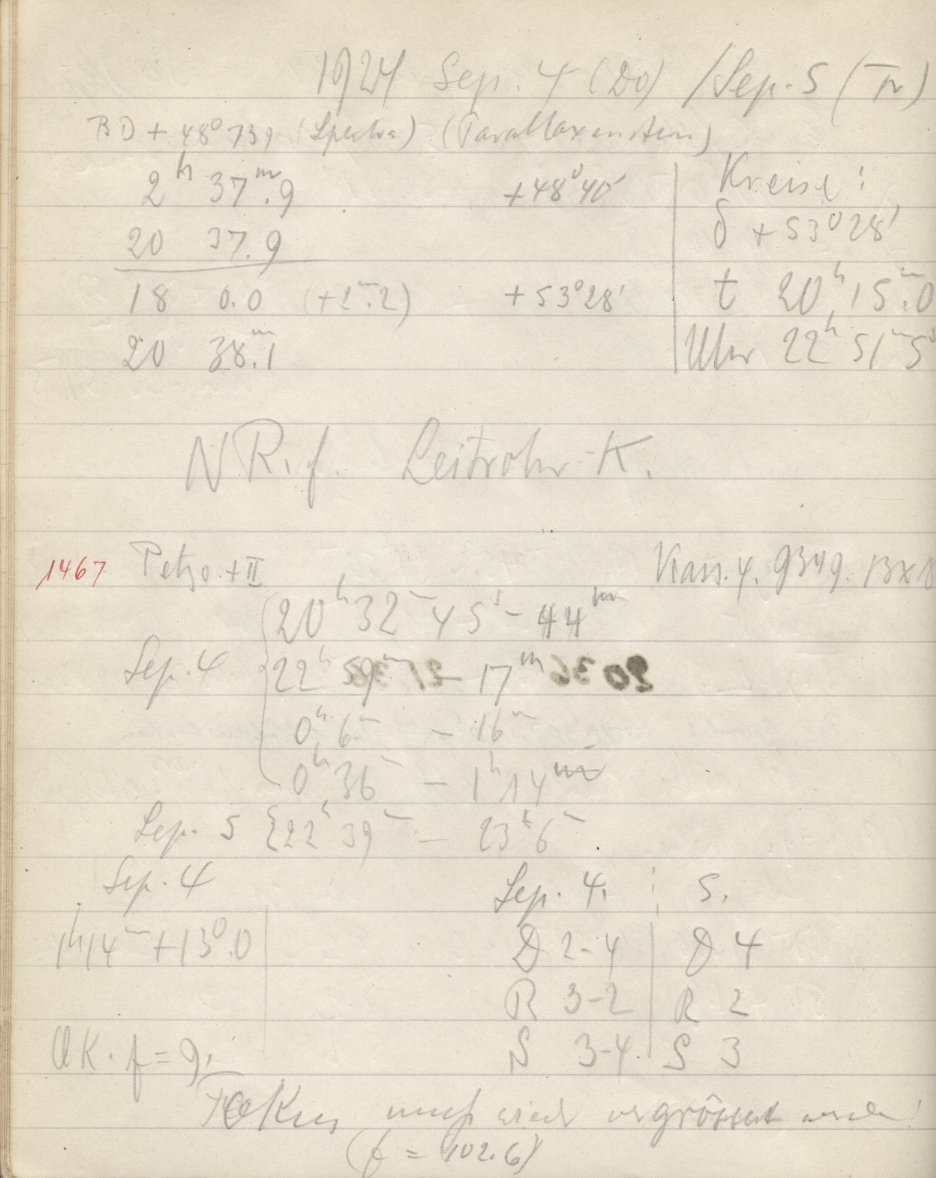 1924 Sep. 4 (Do) / Sep. 5 (Fr)
BD + 48° 739 (Spectra) (Parallaxenstern)
2ʰ 37ᵐ.9 +48° 40'
20 37.9
18 0.0 (+2ᵐ.2) +53° 28'
20 38ᵐ.1
Kreise:
δ +53° 28'
t 20ʰ 15ᵐ.0
Uhr 22ʰ 51ᵐ 5ˢ
N R. f. Leitrohr-K.
1467 Petzo. + II Kass. 4. 9349. 13x18
Sep. 4 { 20ʰ 32ᵐ 45ˢ - 44ᵐ
22ʰ 9ᵐ - 17ᵐ
0ʰ 6ᵐ - 16ᵐ
0ʰ 36ᵐ - 1ʰ 14ᵐ
Sep. 5 { 22ʰ 39ᵐ - 23ʰ 6ᵐ
Sep. 4 Sep. 4. 5.
1ʰ 14ᵐ +13°.0 D 2-4 D 4
R 3-2 R 2
S 3-4. S 3
OK. f = 9.
Fokus muss wieder vergrössert werden!
(f = 102.6)